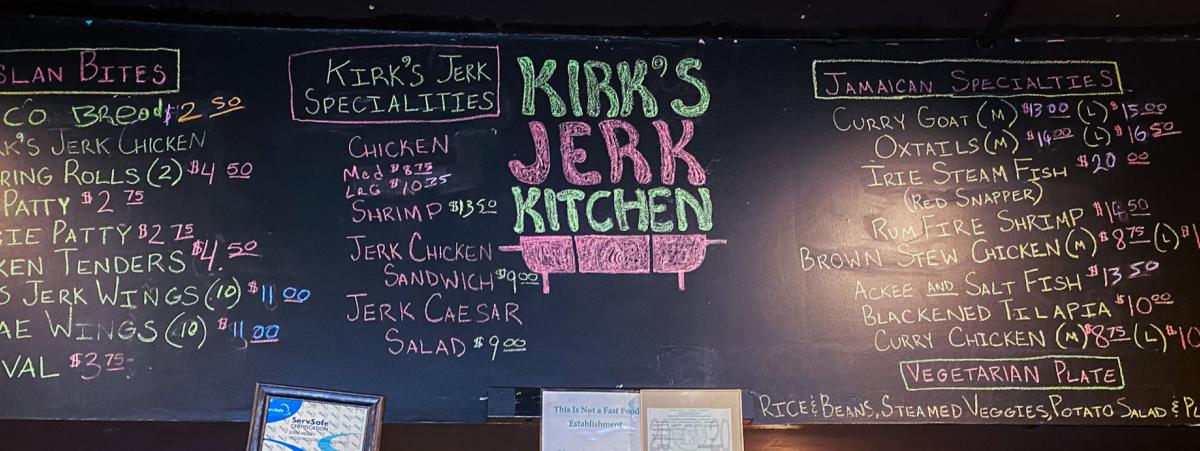 SLAN BITES
CO BREAD $2 50
K'S JERK CHICKEN
RING ROLLS (2) $4 50
PATTY $2 75
IE PATTY $2 75
KEN TENDERS $4.50
S JERK WINGS (10) $11 00
AE WINGS (10) $11.00
VAL $3 75
KIRK'S JERK
SPECIALITIES
CHICKEN
MED $8 75
LRG $10 75
SHRIMP $13 50
JERK CHICKEN
SANDWICH $9 00
JERK CAESAR
SALAD $9 00
KIRK'S
JERK
KITCHEN
JAMAICAN SPECIALTIES
CURRY GOAT (M) $13 00 (L) $15.00
OXTAILS (M) $14 00 (L) $16 50
IRIE STEAM FISH $20 00
(RED SNAPPER)
RUM FIRE SHRIMP $14 50
BROWN STEW CHICKEN (M) $8 75 (L) $1
ACKEE AND SALT FISH $13 50
BLACKENED TILAPIA $10 00
CURRY CHICKEN (M) $8 75 (L) $10
VEGETARIAN PLATE
RICE & BEANS, STEAMED VEGGIES, POTATO SALAD &
ServSafe
CERTIFICATION
This Is Not a Fast Food
Establishment